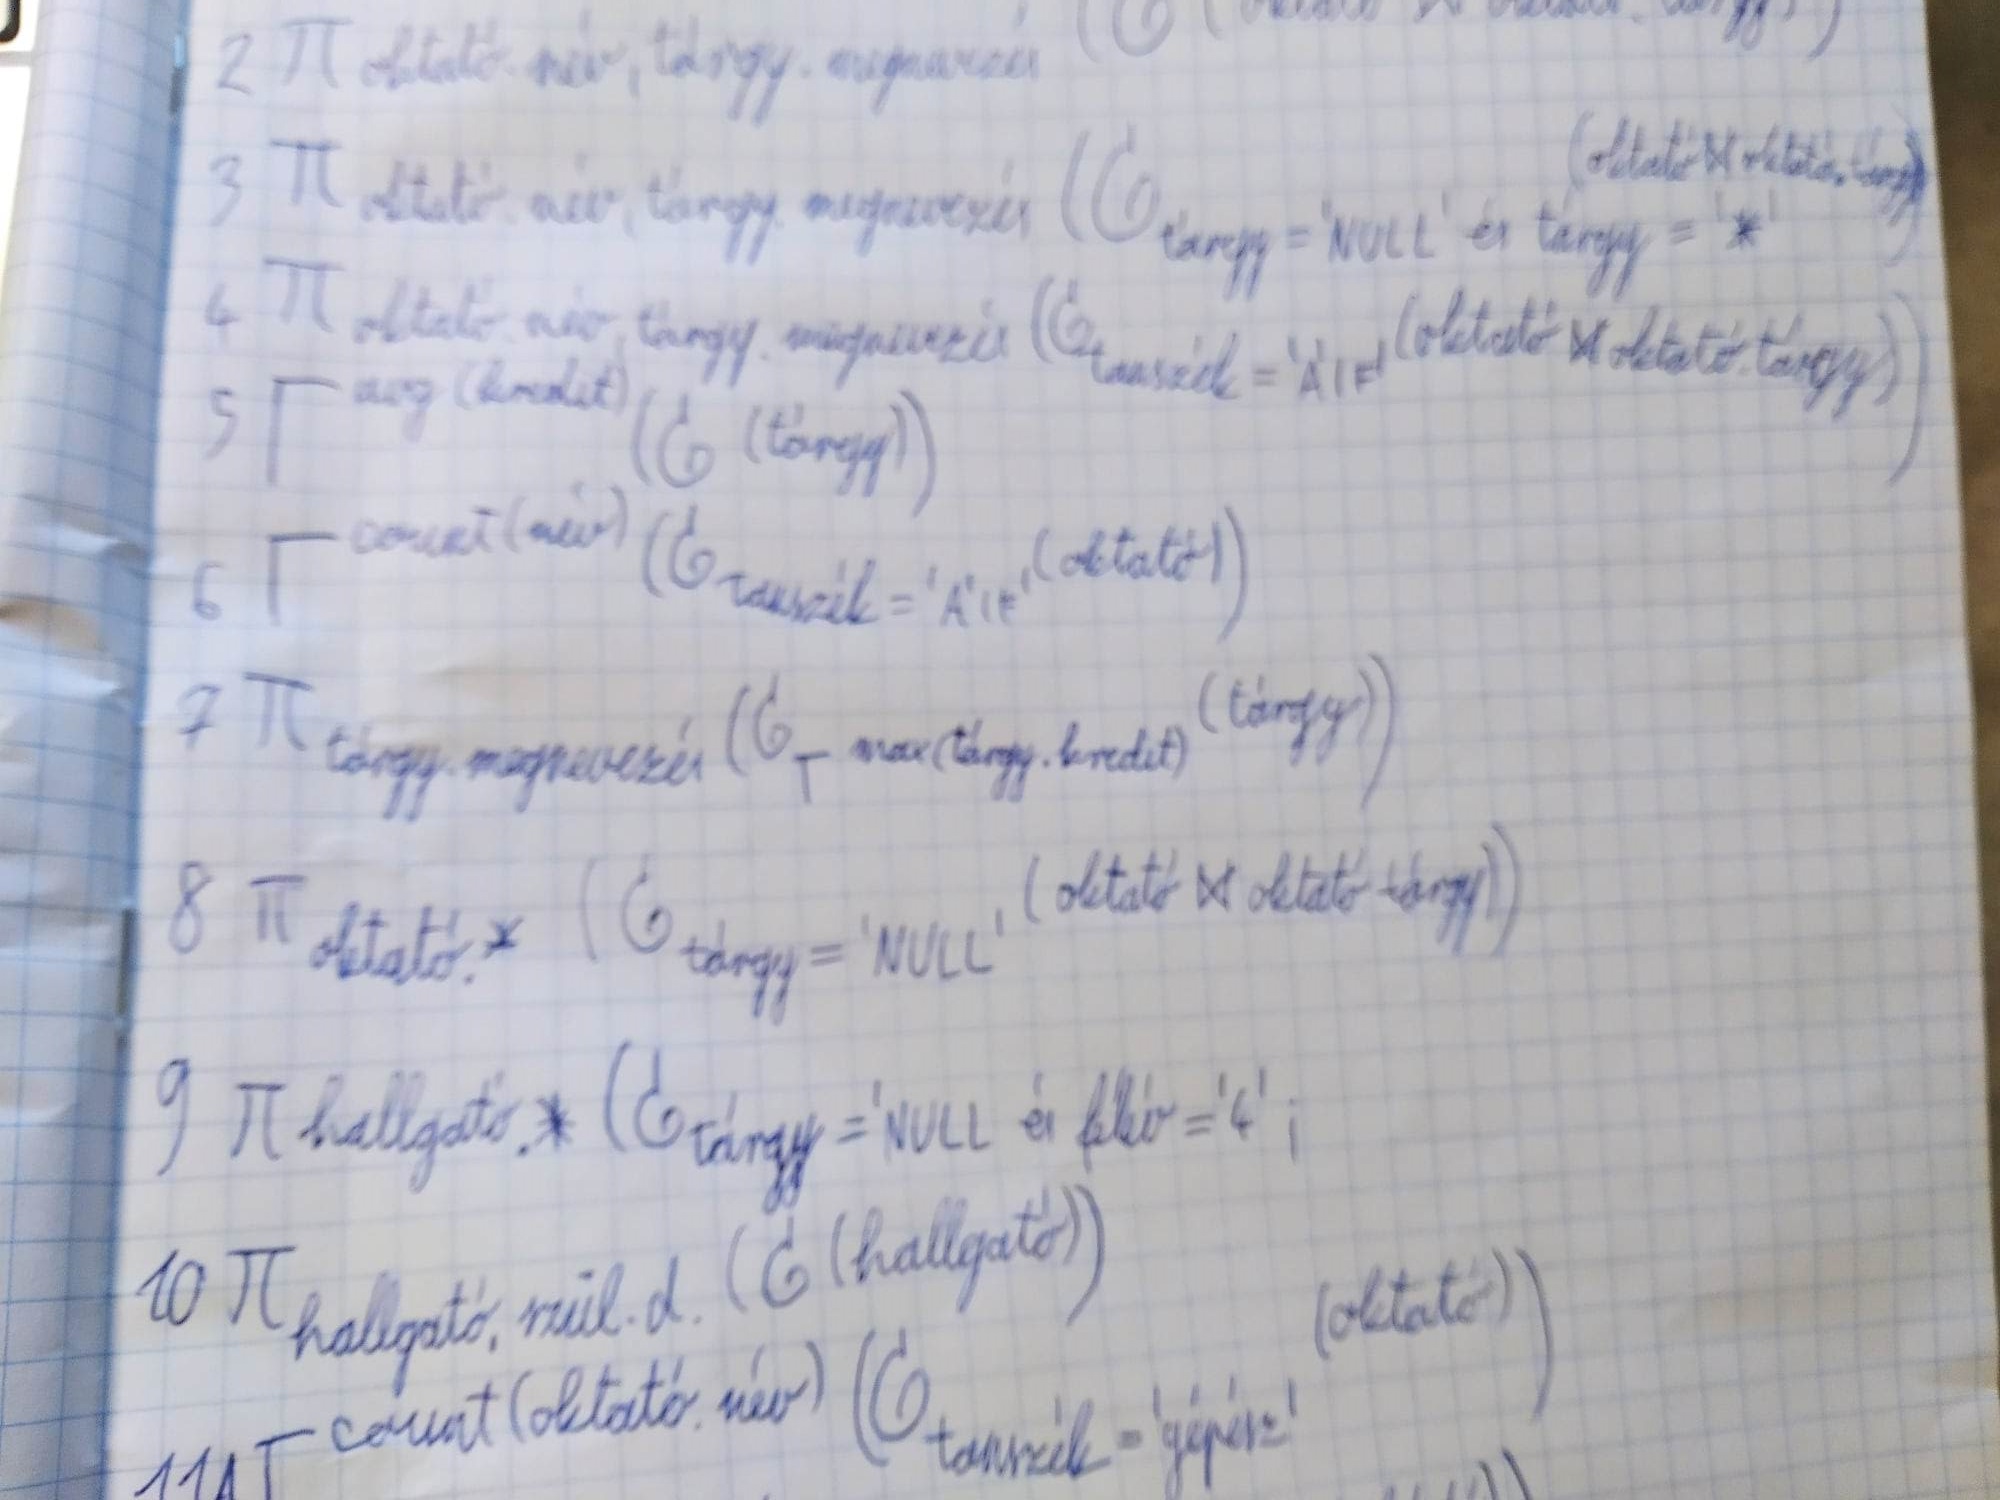 2 π oktató.név, tárgy.megnevezés (σ (oktató ⋈ oktató.tárgy))
3 π oktató.név, tárgy.megnevezés (σ tárgy = 'NULL' és tárgy = '*' (oktató ⋈ oktató.tárgy))
4 π oktató.név, tárgy.megnevezés (σ tanszék = 'ÁIT' (oktató ⋈ oktató.tárgy))
5 Γ avg (kredit) (σ (tárgy))
6 Γ count (név) (σ tanszék = 'ÁIT' (oktató))
7 π tárgy.megnevezés (σ Γ max (tárgy.kredit) (tárgy))
8 π oktató.* (σ tárgy = 'NULL' (oktató ⋈ oktató tárgy))
9 π hallgató.* (σ tárgy = 'NULL és félév = '4' ;
10 π hallgató, szül.d. (σ (hallgató))
11A Γ count (oktató.név) (σ tanszék = 'gépész' (oktató))